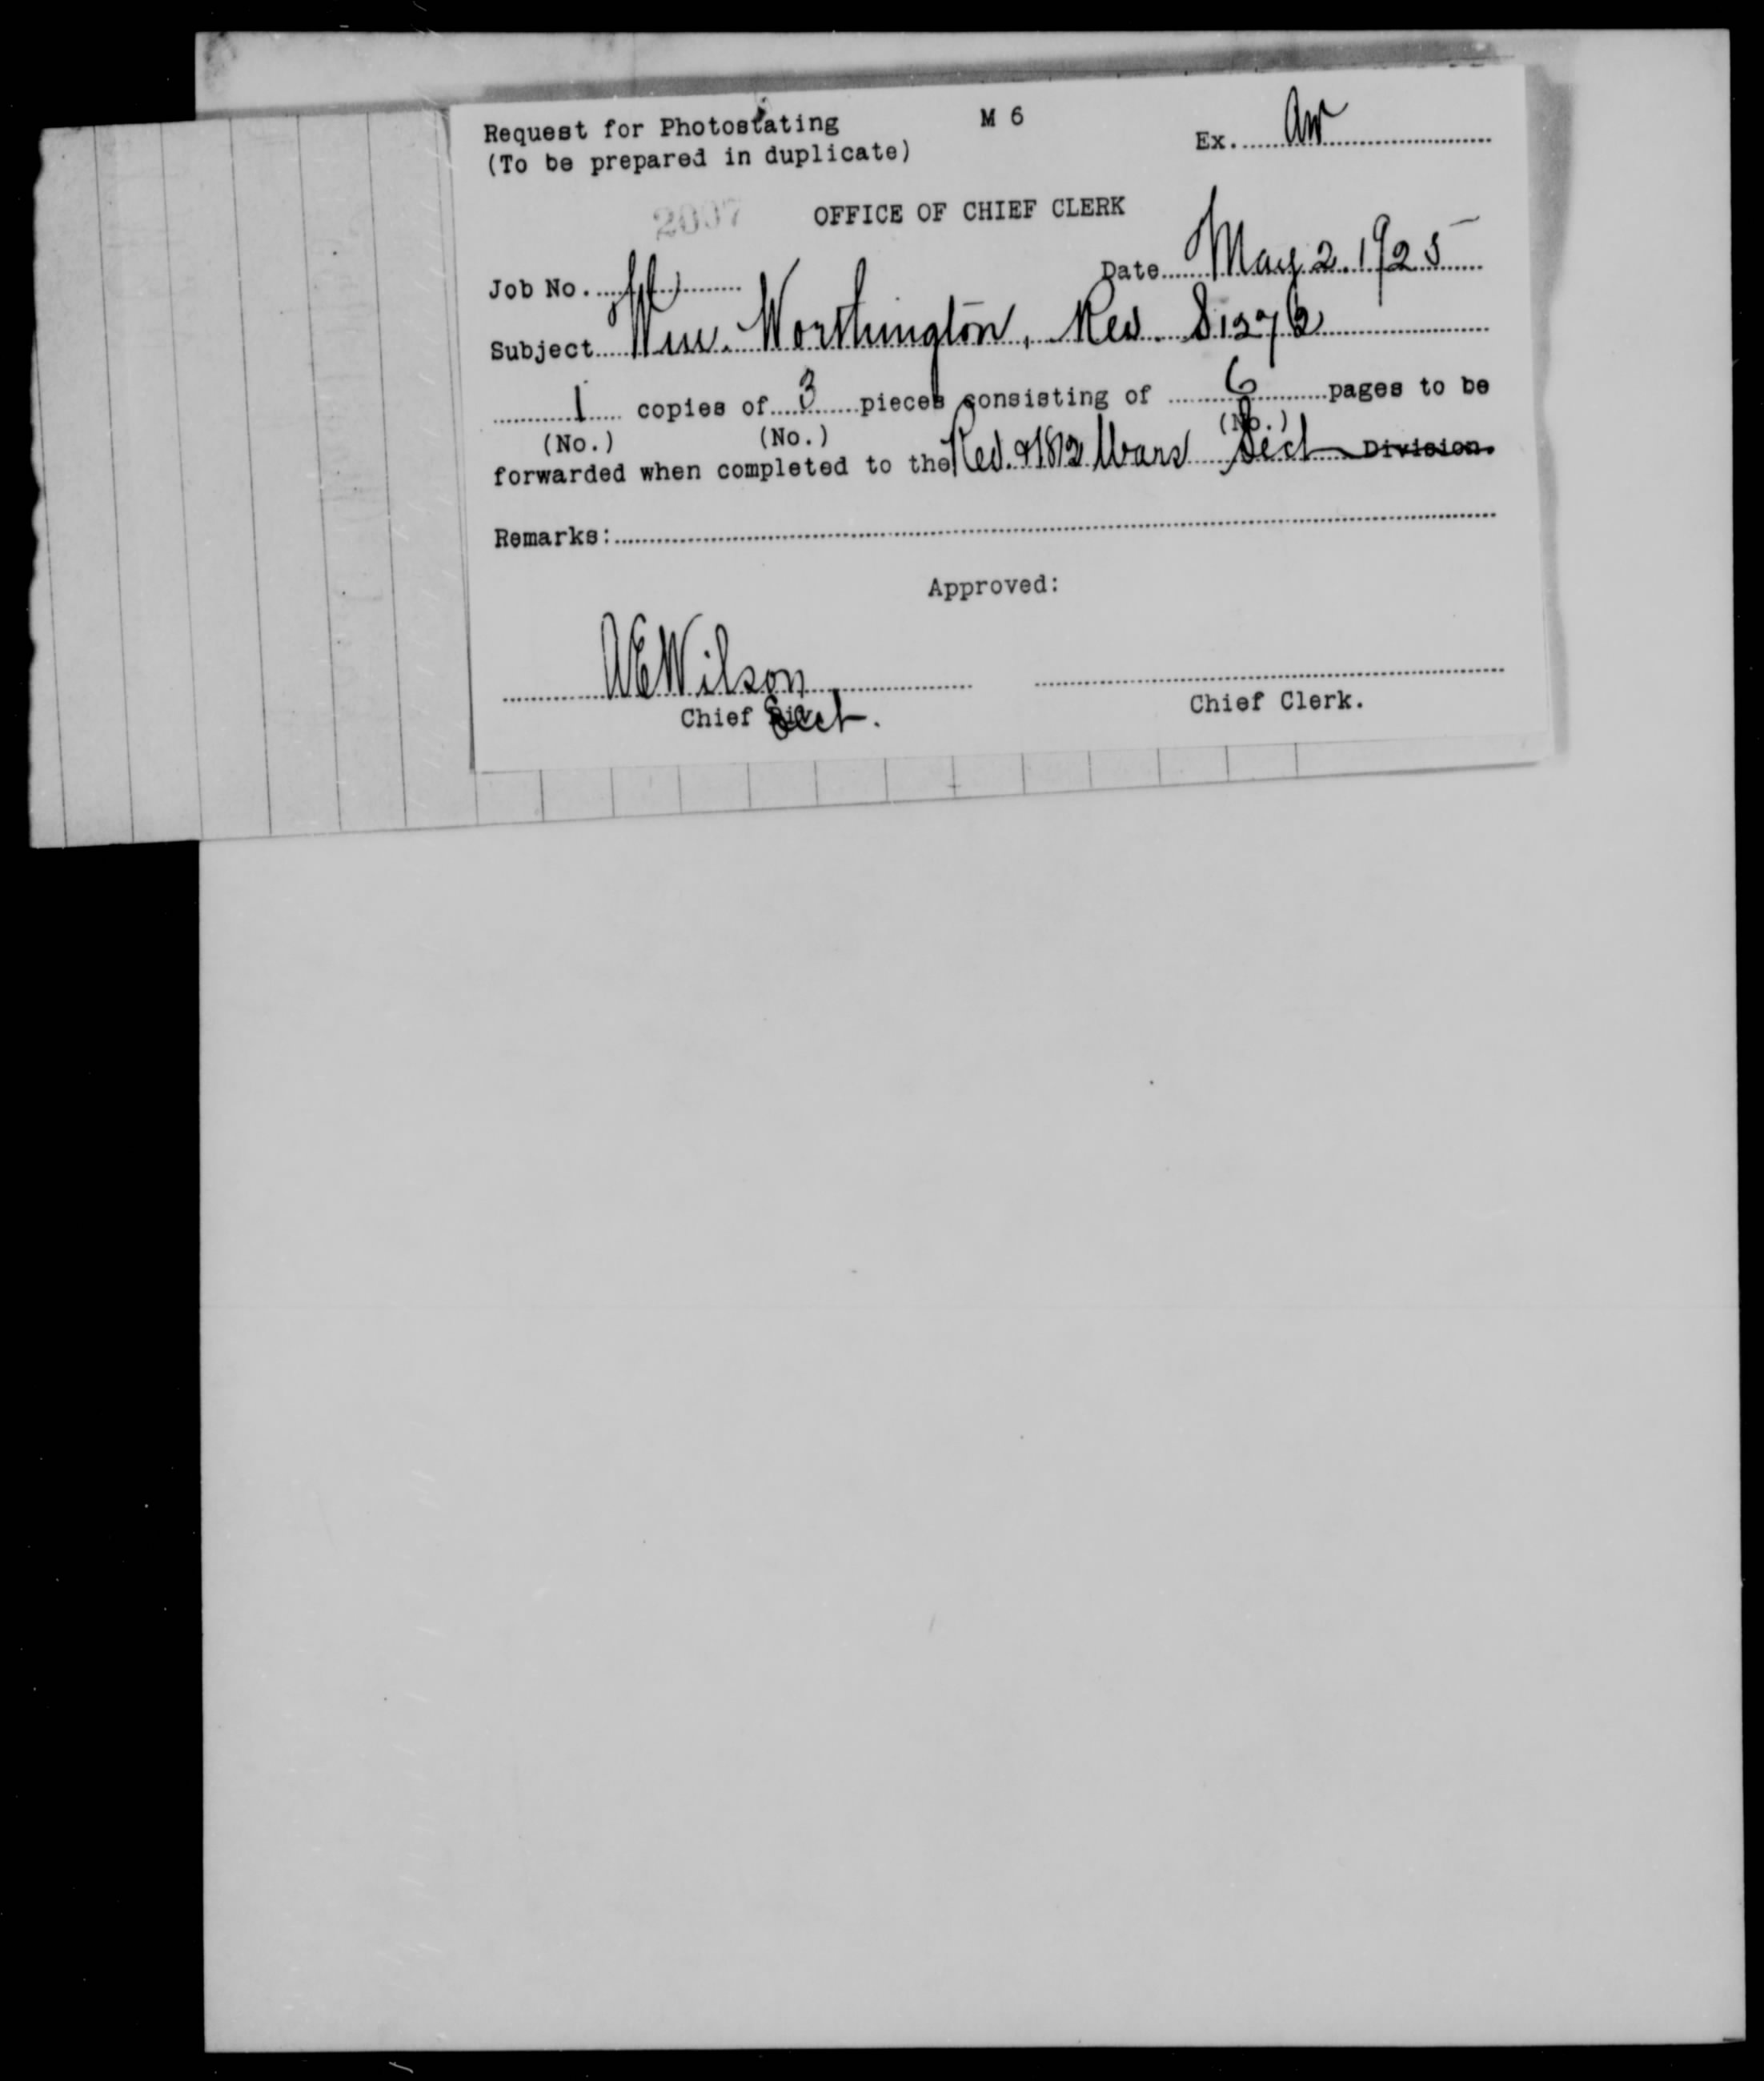 Request for Photostating M 6 Ex. AW
(To be prepared in duplicate)
2007 OFFICE OF CHIEF CLERK
Job No. Date May 2. 1925
Subject Wm. Worthington, Rev.
1 copies of 3 pieces consisting of 6 pages to be
(No.) (No.) (No.)
forwarded when completed to the Rev. & 1812 Wars Sect Division.
Remarks:
Approved:
A E Wilson
Chief Sect. Chief Clerk.